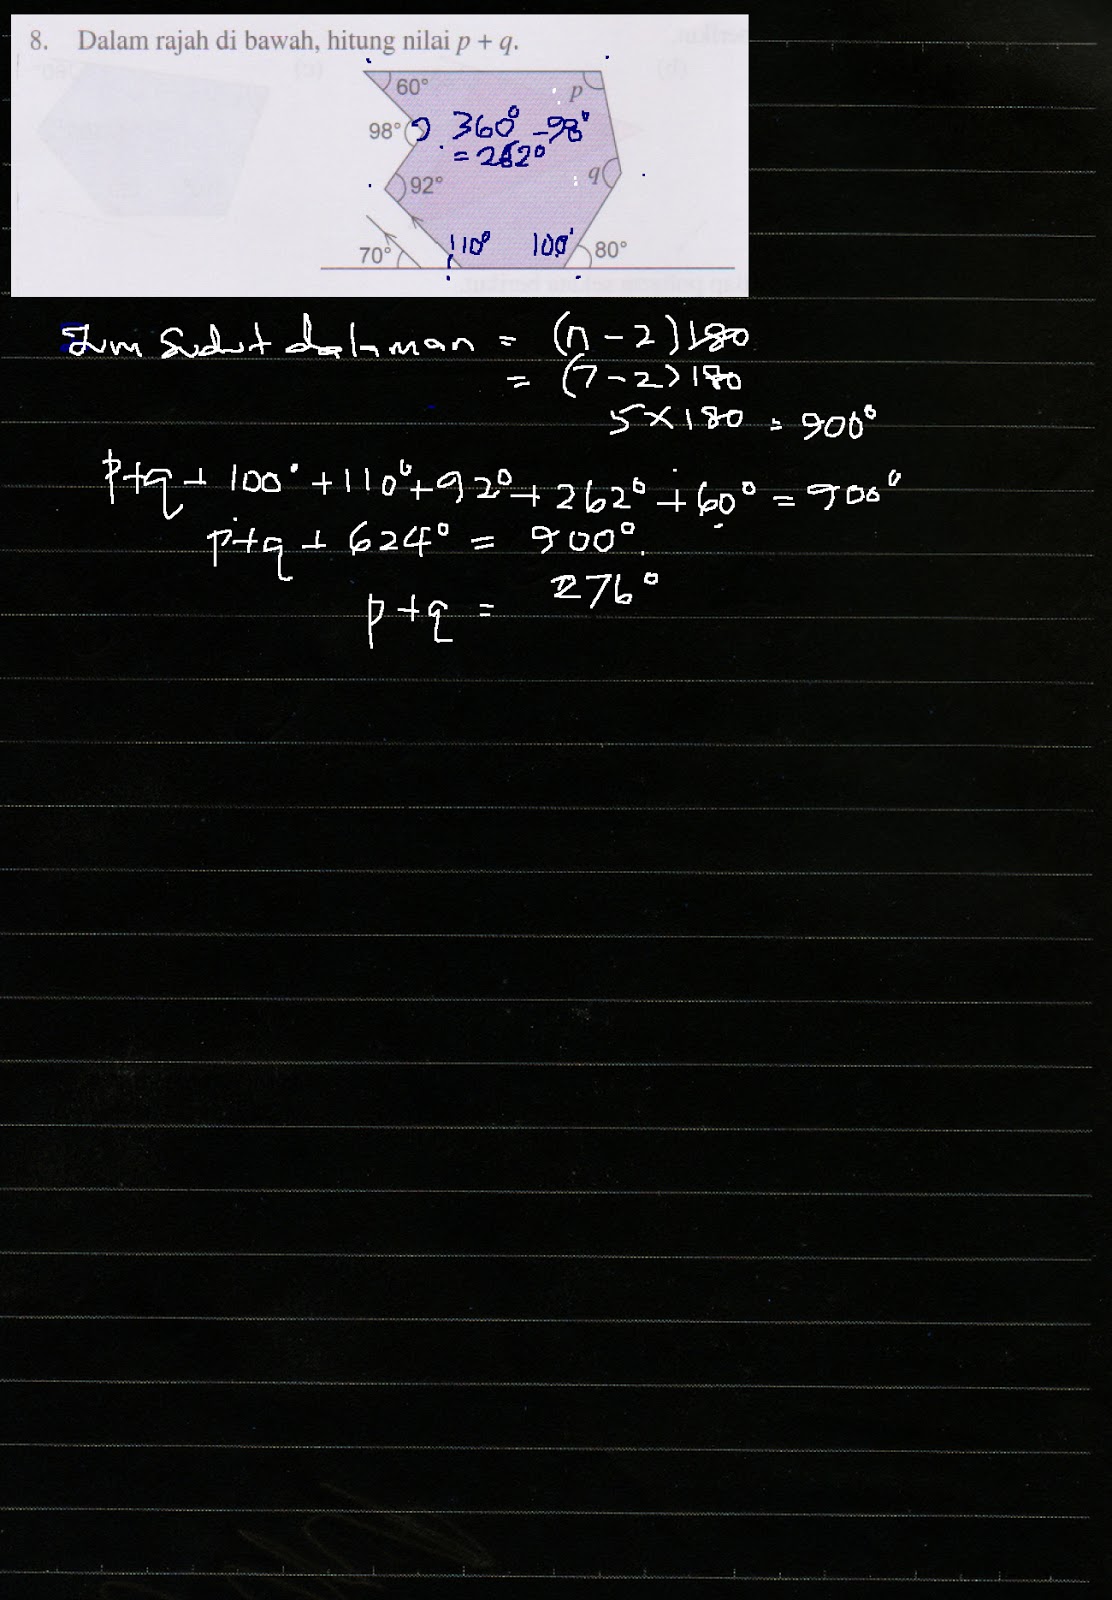 8. Dalam rajah di bawah, hitung nilai p + q.
60°
p
98°
360° - 98°
= 262°
92°
q
70°
110°
100°
80°
Jum Sudut dalaman = (n - 2)180
= (7 - 2)180
5 × 180 = 900°
p+q + 100° + 110° + 92° + 262° + 60° = 900°
p+q + 624° = 900°.
276°
p+q =